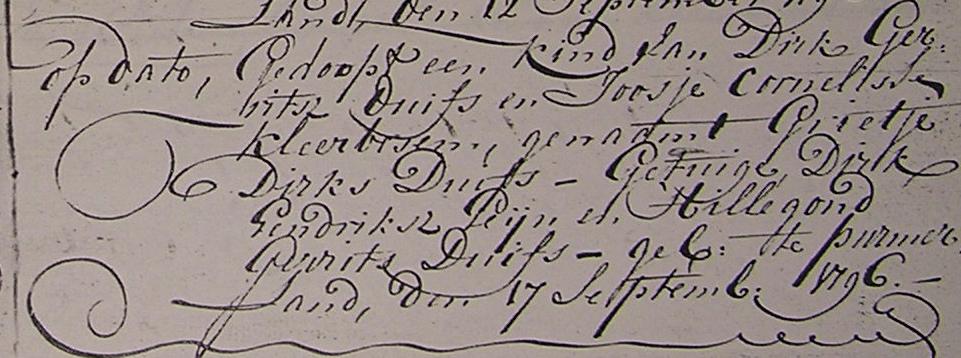 Land, den 12 September
op dato, Gedoopt een kind van Dirk Ger:
ritsz Duifs en Joosje Cornelisse
kleerbesem, genaamt Grietje
Dirks Duifs – Getuige, Dirk
Hendriksz Pijn en Hillegond
Gerrits Duifs – geb: te purmer
land, den 17 Septemb: 1796. –